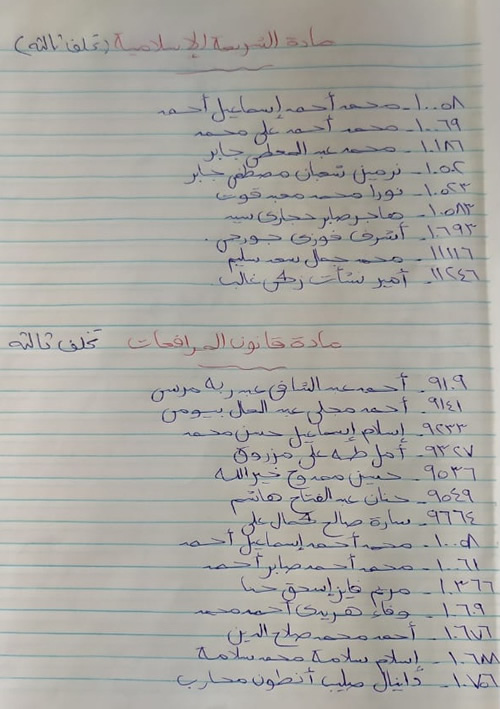 مادة الشريعة الإسلامية (تخلف ثالثه)
١٠٠٥٨- محمد أحمد إسماعيل أحمد
١٠٠٦٩- محمد أحمد على محمد
١٠١٨٦- محمد عبد المعطى جابر
١٠٥٠٢- نرمين شعبان مصطفى جابر
١٠٥٢٣- نورا محمد معبد قوت
١٠٥٨٣- هاجر صابر حجازى سيد
١٠٦٩٣- أشرف فوزى جورجى
١١١١٦- محمد جمال سعد سليم
١١٢٤٦- أمير نشأت زكى غالب
مادة قانون المرافعات تخلف ثالثه
٩١٠٩- أحمد عبد الشافى عبد ربه مرسى
٩١٤١- أحمد محلى عبد العال بيومى
٩٢٣٣- إسلام إسماعيل حسن محمد
٩٣٢٧- أمل طه على مرزوق
٩٥٣٦- حسين ممدوح خير الله
٩٥٤٩- حنان عبد الفتاح هاشم
٩٦٦٤- سارة صالح كمال على
١٠٠٥٨- محمد أحمد إسماعيل أحمد
١٠٠٦١- محمد أحمد صابر أحمد
١٠٣٦٦- مريم فايز إسحق حنا
١٠٦٩- وفاء هريدى أحمد محمد
١٠٦٧٦- أحمد محمد صلاح الدين
١٠٦٨٨- إسلام سلامة محمد سلامة
١٠٧٥٦- دانيال صليب أنطون محارب